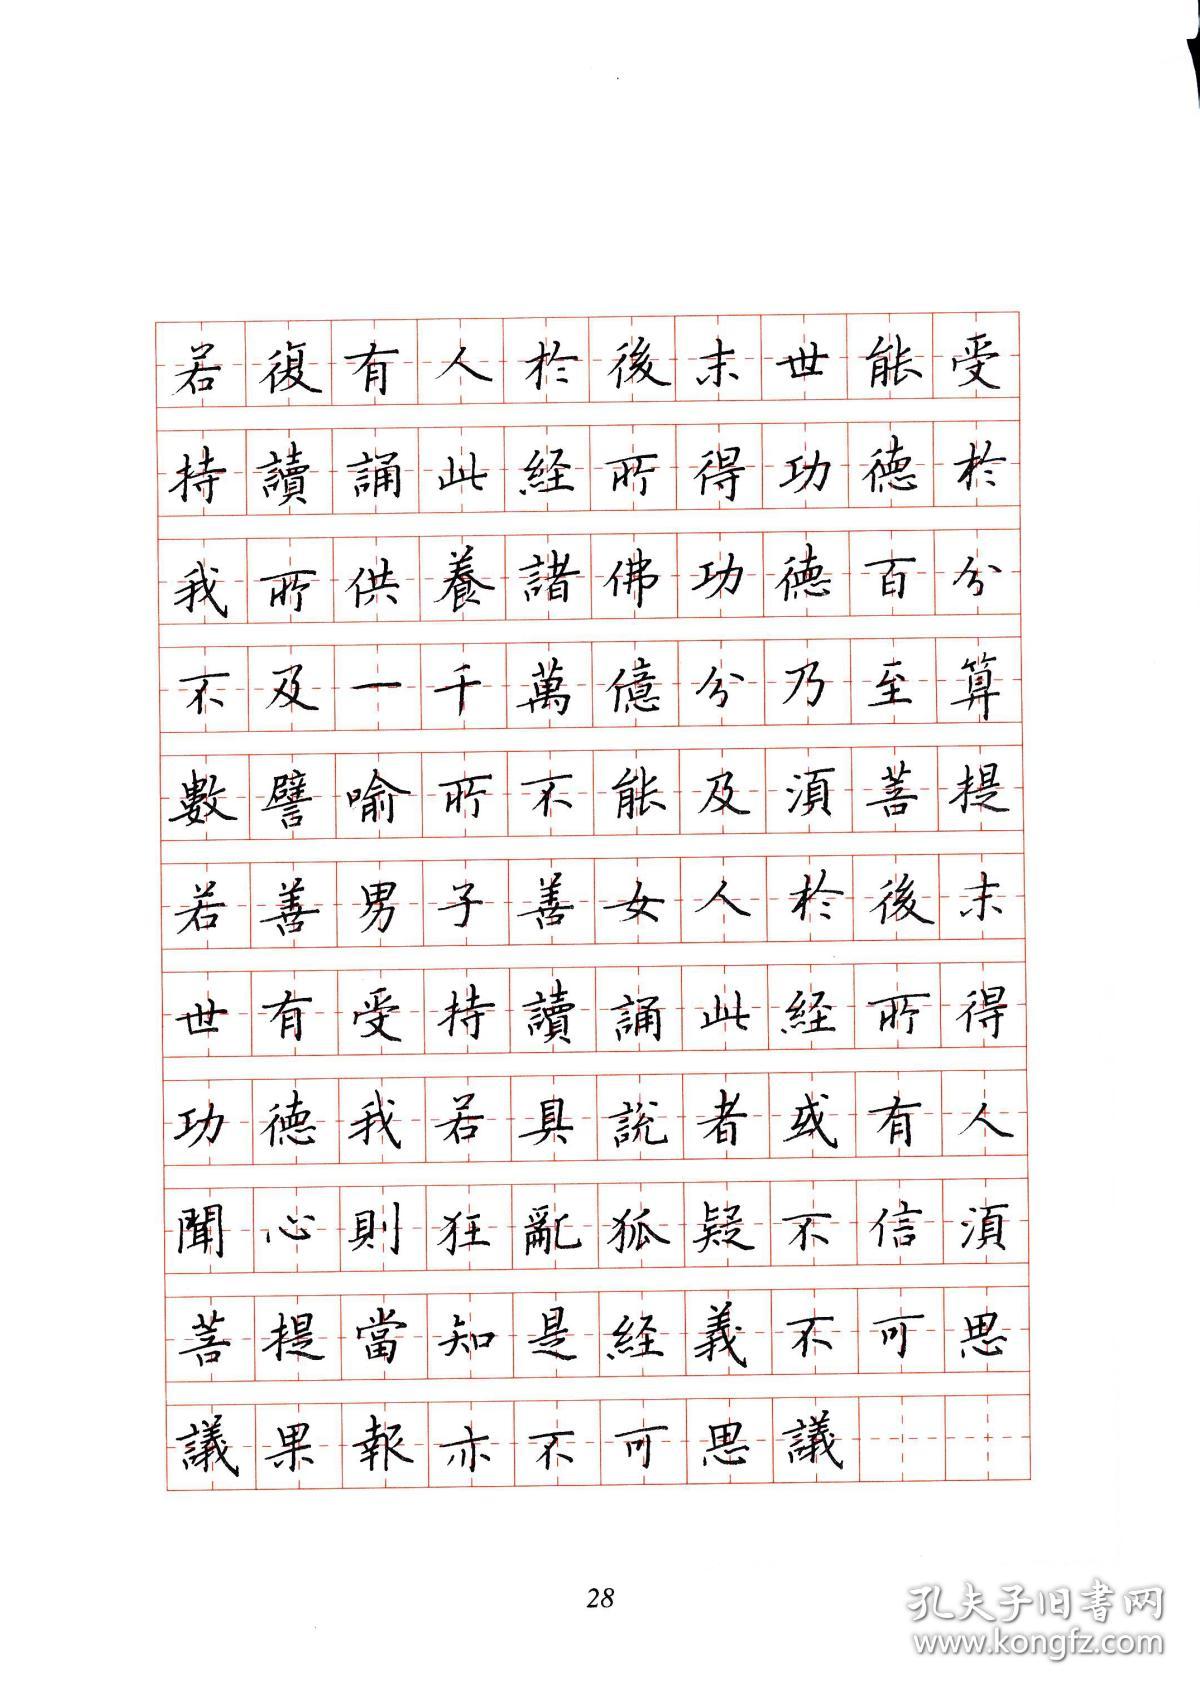 若復有人於後末世能受
持讀誦此経所得功德於
我所供養諸佛功德百分
不及一千萬億分乃至算
數譬喻所不能及湏菩提
若善男子善女人於後末
世有受持讀誦此経所得
功德我若具說者或有人
聞心則狂亂狐疑不信湏
菩提當知是経義不可思
議果報亦不可思議
28
孔夫子旧書网
www.kongfz.com